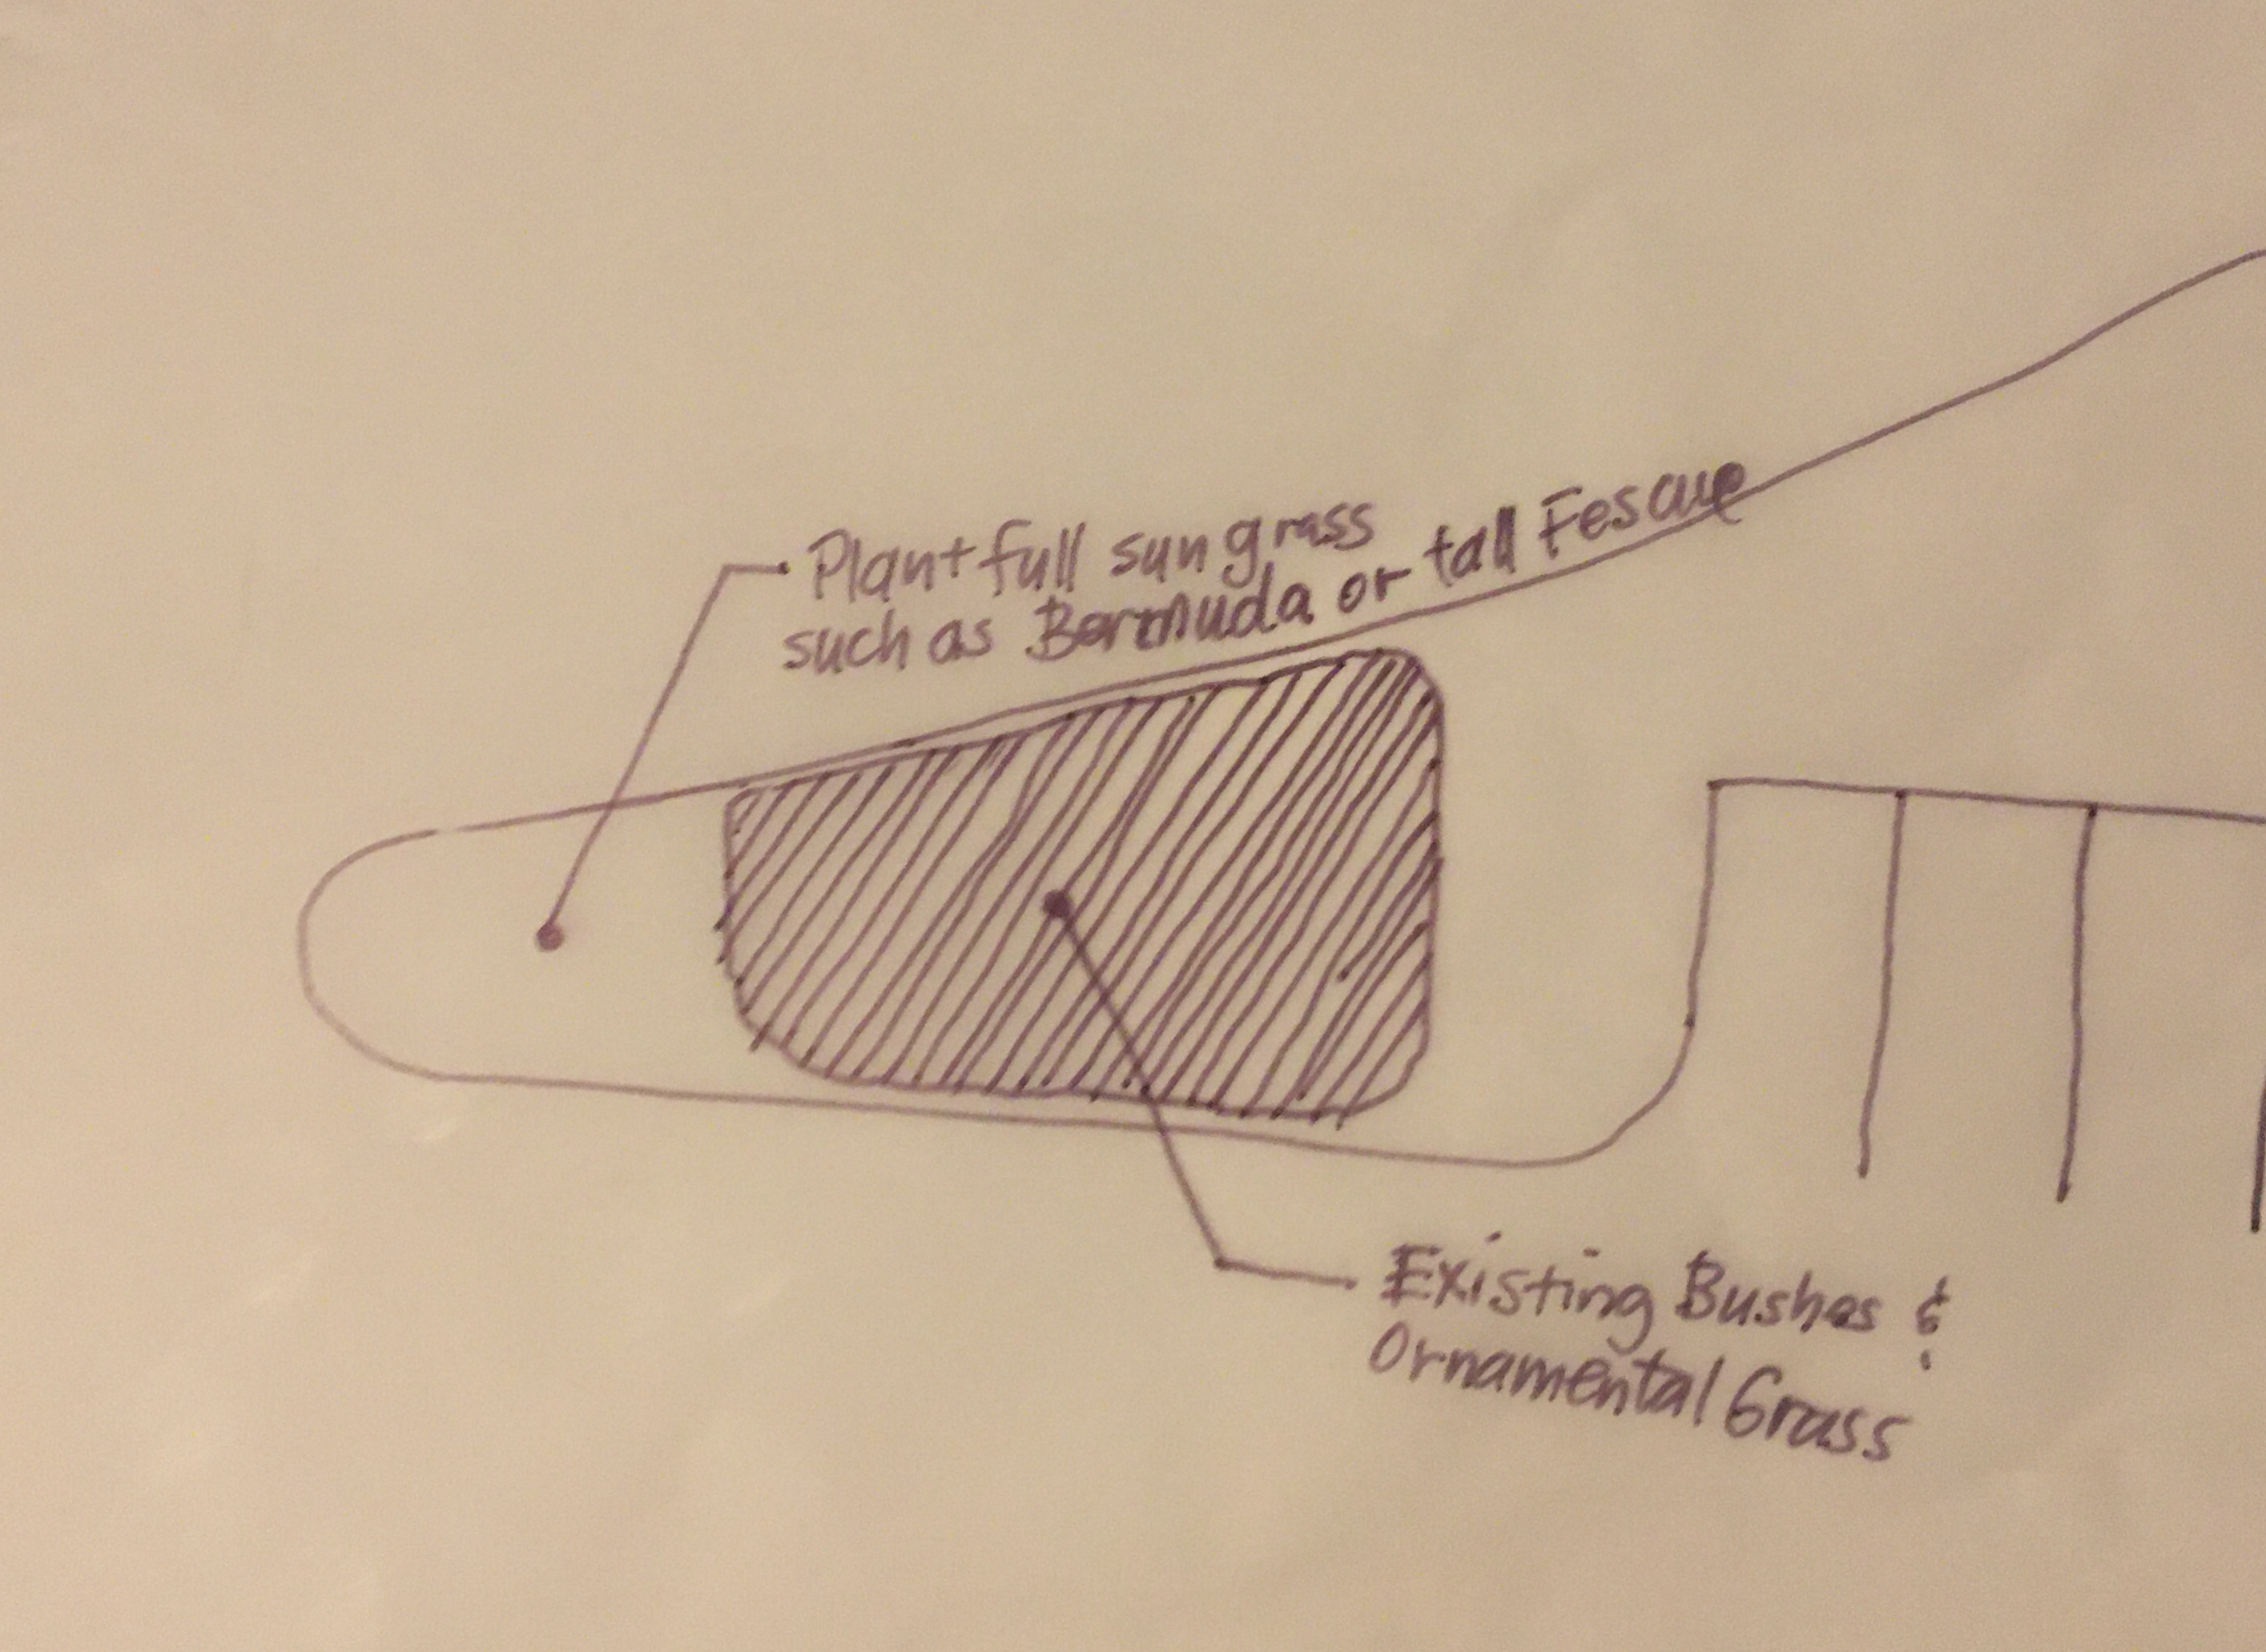 Plant full sun grass
such as Bermuda or tall Fescue
Existing Bushes &
Ornamental Grass